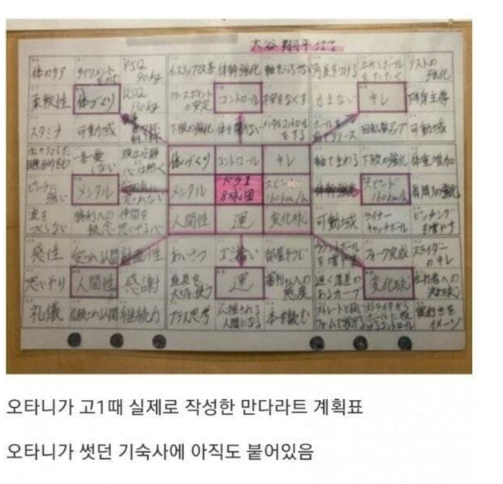 大谷翔平
体のケア サプリメントをのむ FSQ 90kg インステップ改善 体幹強化 軸をぶらさない 角度をつける 上からボールをたたく リストの強化
柔軟性 体づくり RSQ 130kg コントロール 不安をなくす 力まない キレ 下半身主導
スタミナ 可動域 下肢の強化 体を開かない メンタルコントロールをする ボールを前でリリース 回転数アップ 可動域
一喜一憂しない 頭は冷静に心は熱く 体づくり コントロール キレ 軸でまわる 下肢の強化 体重増加
ピンチに強い メンタル メンタル ドラ1 8球団 スピード160km/h 体幹強化 スピード160km/h 肩周りの強化
波をつくらない 勝利への執念 仲間を思いやる心 人間性 運 変化球 可動域 ライナーキャッチボール ピッチングを増やす
感性 愛される人間 計画性 あいさつ ゴミ拾い 部屋そうじ カウントボールを増やす フォーク完成 スライダーのキレ
思いやり 人間性 感謝 道具を大切に使う 運 審判さんへの態度 遅く落差のあるカーブ 変化球 左打者への決め球
礼儀 信頼される人間 継続力 プラス思考 応援される人間になる 本を読む
오타니가 고1때 실제로 작성한 만다라트 계획표
오타니가 썻던 기숙사에 아직도 붙어있음